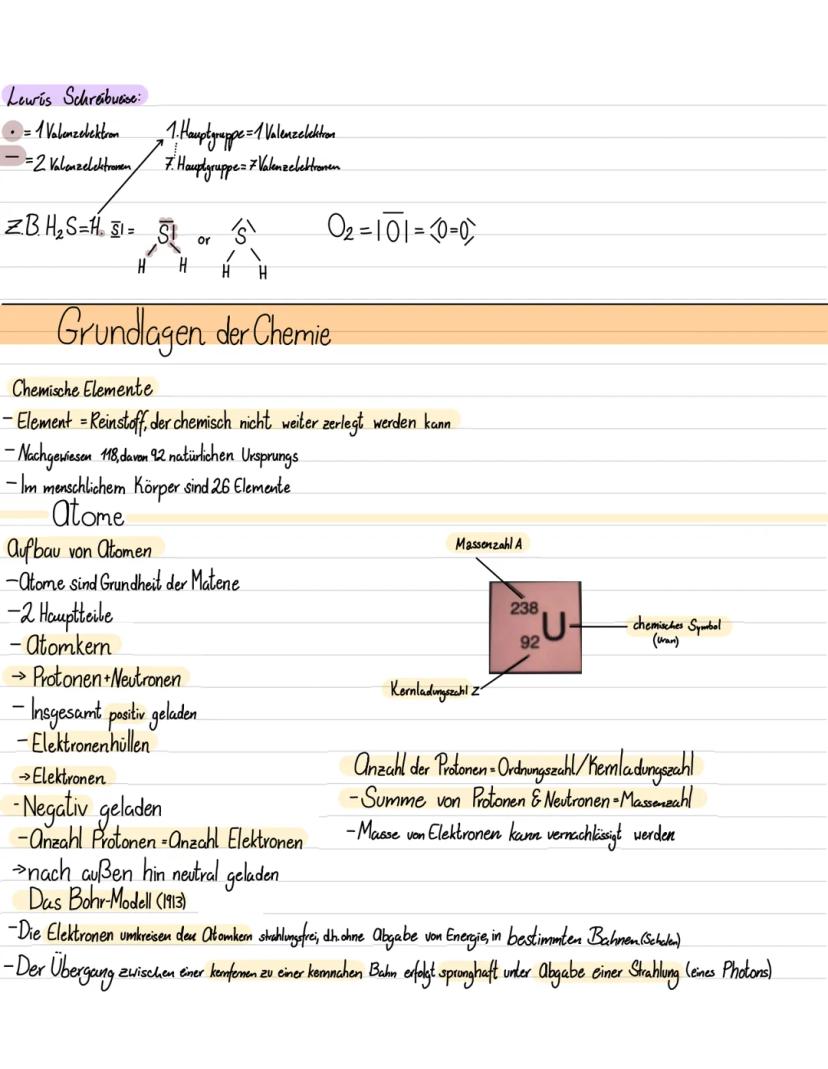 Lewis Schreibweise:
• = 1 Valenzelektron
1. Hauptgruppe = 1 Valenzelektron
— = 2 Valenzelektronen
7. Hauptgruppe = 7 Valenzelektronen
Z.B. H₂S = H. S̅| = S̅| or S
H H H H
O₂ = |O̅| = ⟨O=O⟩
Grundlagen der Chemie
Chemische Elemente
- Element = Reinstoff, der chemisch nicht weiter zerlegt werden kann
- Nachgewiesen 118, davon 92 natürlichen Ursprungs
- Im menschlichem Körper sind 26 Elemente
Atome
Aufbau von Atomen
- Atome sind Grundheit der Materie
- 2 Hauptteile
- Atomkern
→ Protonen + Neutronen
- Insgesamt positiv geladen
- Elektronenhüllen
→ Elektronen
- Negativ geladen
- Anzahl Protonen = Anzahl Elektronen
→ nach außen hin neutral geladen
Massenzahl A
238
U
92
chemisches Symbol
(Uran)
Kernladungszahl Z
Anzahl der Protonen = Ordnungszahl/Kernladungszahl
- Summe von Protonen & Neutronen = Massenzahl
- Masse von Elektronen kann vernachlässigt werden
Das Bohr-Modell (1913)
- Die Elektronen umkreisen den Atomkern strahlungsfrei, d.h. ohne Abgabe von Energie, in bestimmten Bahnen (Schalen)
- Der Übergang zwischen einer kernfernen zu einer kernnahen Bahn erfolgt sprunghaft unter Abgabe einer Strahlung (eines Photons)